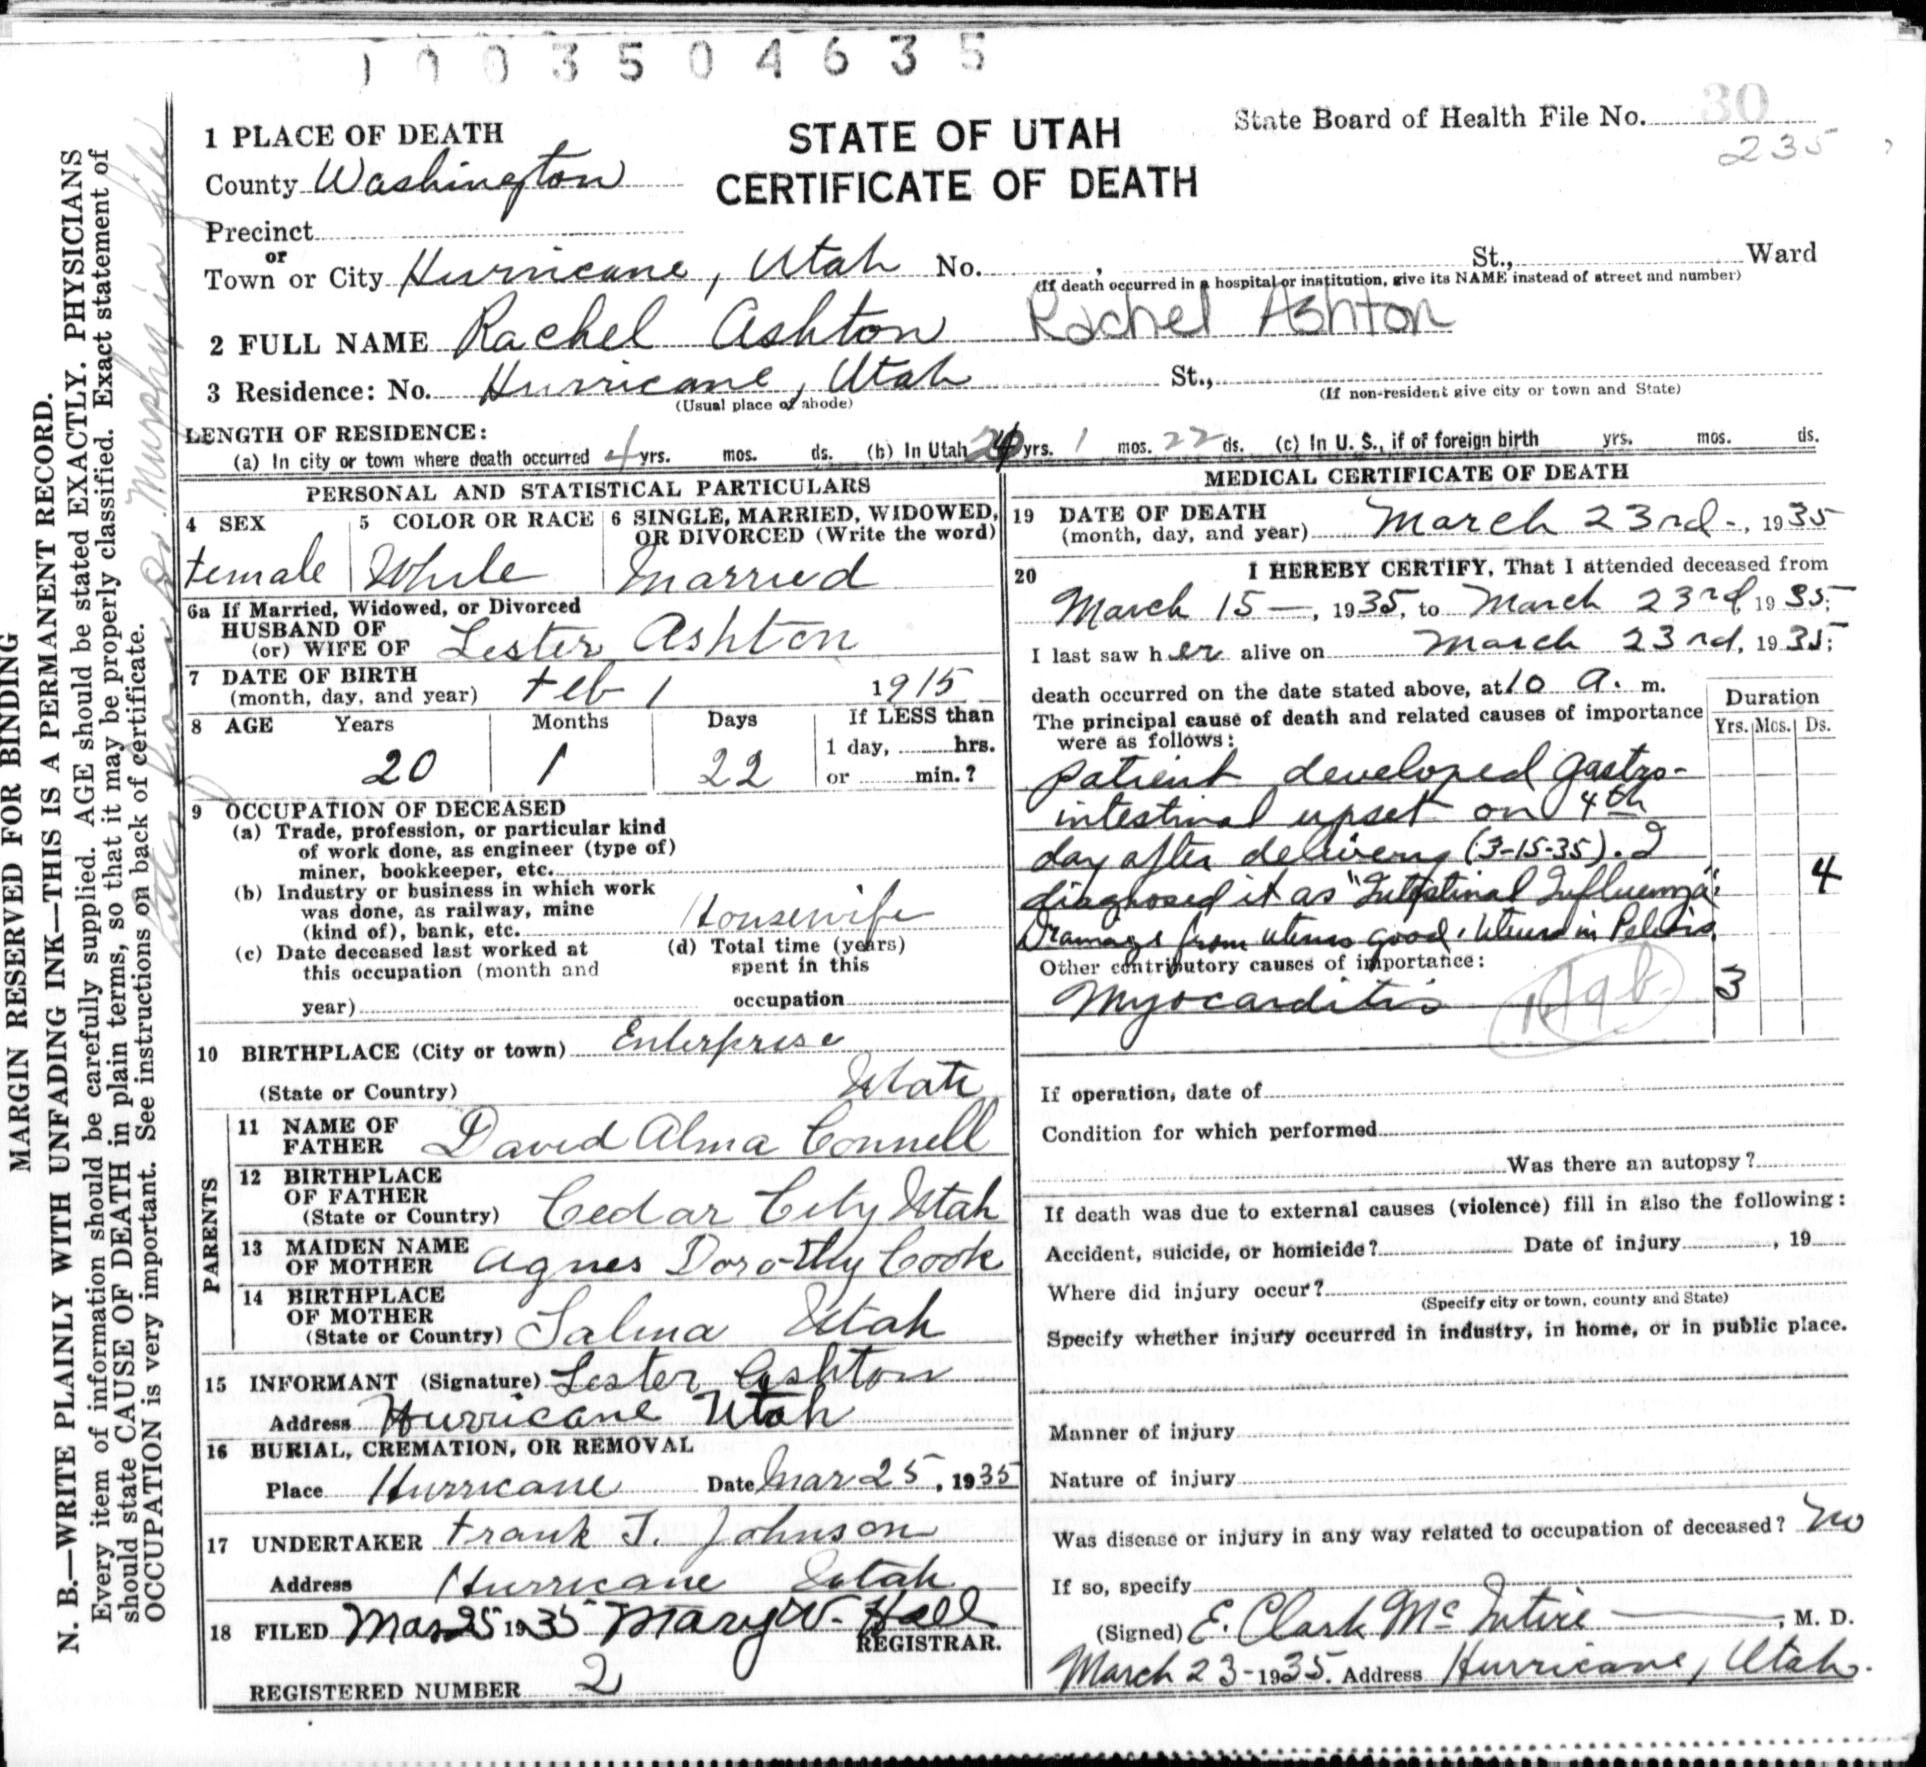 1003504635
State Board of Health File No. 30
235
1 PLACE OF DEATH
STATE OF UTAH
CERTIFICATE OF DEATH
County Washington
Precinct
or
Town or City Hurricane, Utah No. , St., Ward
(If death occurred in a hospital or institution, give its NAME instead of street and number)
2 FULL NAME Rachel Ashton Rachel Ashton
3 Residence: No. Hurricane, Utah St.,
(Usual place of abode) (If non-resident give city or town and State)
LENGTH OF RESIDENCE:
(a) In city or town where death occurred 4 yrs. mos. ds. (b) In Utah 20 yrs. 1 mos. 22 ds. (c) In U. S., if of foreign birth yrs. mos. ds.
PERSONAL AND STATISTICAL PARTICULARS
4 SEX 5 COLOR OR RACE 6 SINGLE, MARRIED, WIDOWED,
OR DIVORCED (Write the word)
Female White Married
6a If Married, Widowed, or Divorced
HUSBAND OF
(or) WIFE OF Lester Ashton
7 DATE OF BIRTH
(month, day, and year) Feb 1 1915
8 AGE Years Months Days If LESS than
1 day, hrs.
20 1 22 or min.?
9 OCCUPATION OF DECEASED
(a) Trade, profession, or particular kind
of work done, as engineer (type of)
miner, bookkeeper, etc.
(b) Industry or business in which work
was done, as railway, mine
(kind of), bank, etc. Housewife
(c) Date deceased last worked at (d) Total time (years)
this occupation (month and spent in this
year) occupation
10 BIRTHPLACE (City or town) Enterprise
(State or Country) Utah
PARENTS
11 NAME OF
FATHER David Alma Connell
12 BIRTHPLACE
OF FATHER
(State or Country) Cedar City Utah
13 MAIDEN NAME
OF MOTHER Agnes Dorothy Cook
14 BIRTHPLACE
OF MOTHER
(State or Country) Salina Utah
15 INFORMANT (Signature) Lester Ashton
Address Hurricane Utah
16 BURIAL, CREMATION, OR REMOVAL
Place Hurricane Date Mar 25, 1935
17 UNDERTAKER Frank T. Johnson
Address Hurricane Utah
18 FILED Mar 25 1935 Mary W. Hall
REGISTRAR.
REGISTERED NUMBER 2
MEDICAL CERTIFICATE OF DEATH
19 DATE OF DEATH
(month, day, and year) March 23rd, 1935
20 I HEREBY CERTIFY, That I attended deceased from
March 15, 1935, to March 23rd 1935;
I last saw her alive on March 23rd, 1935;
death occurred on the date stated above, at 10 A. m.
The principal cause of death and related causes of importance
were as follows:
Duration
Yrs. Mos. Ds.
Patient developed gastro-
intestinal upset on 4th
day after delivery (3-15-35). I
diagnosed it as "Intestinal Influenza". 4
Drainage from uterus good. Uterus in Pelvis.
Other contributory causes of importance:
Myocarditis 3
If operation, date of
Condition for which performed
Was there an autopsy?
If death was due to external causes (violence) fill in also the following:
Accident, suicide, or homicide? Date of injury , 19
Where did injury occur?
(Specify city or town, county and State)
Specify whether injury occurred in industry, in home, or in public place.
Manner of injury
Nature of injury
Was disease or injury in any way related to occupation of deceased? No
If so, specify
(Signed) E. Clark McIntire, M. D.
March 23-1935. Address Hurricane, Utah.
MARGIN RESERVED FOR BINDING
N. B.—WRITE PLAINLY WITH UNFADING INK—THIS IS A PERMANENT RECORD.
Every item of information should be carefully supplied. AGE should be stated EXACTLY. PHYSICIANS
should state CAUSE OF DEATH in plain terms, so that it may be properly classified. Exact statement of
OCCUPATION is very important. See instructions on back of certificate.
Letter from Dr. Murphy in file